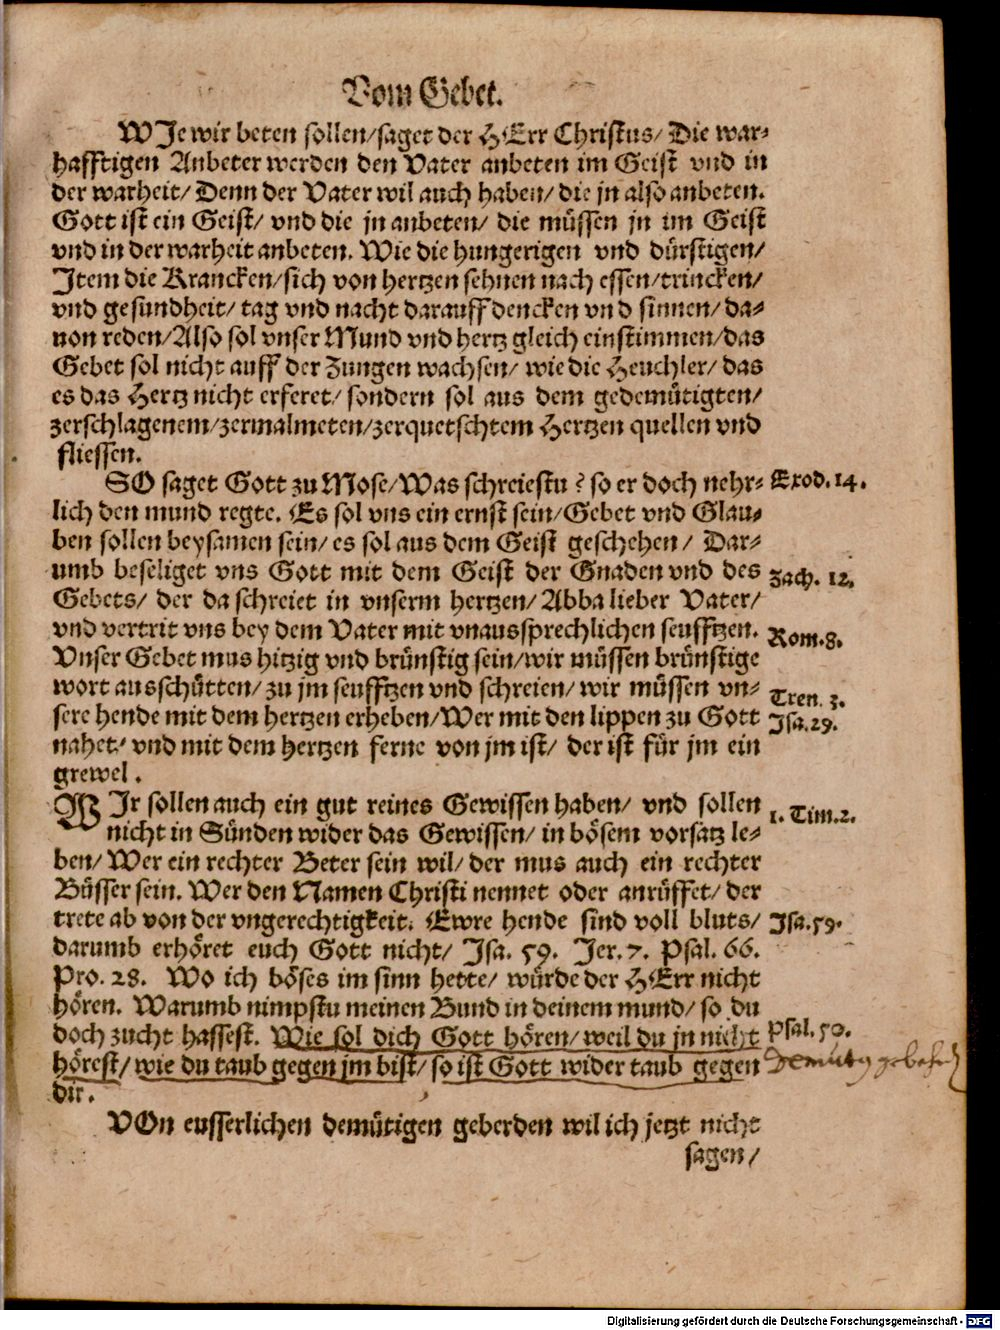 Vom Gebet.
WJe wir beten sollen/saget der HErr Christus/ Die war-
hafftigen Anbeter werden den Vater anbeten im Geist vnd in
der warheit/ Denn der Vater wil auch haben/ die jn also anbeten.
Gott ist ein Geist/ vnd die jn anbeten/ die müssen jn im Geist
vnd in der warheit anbeten. Wie die hungerigen vnd dürstigen/
Jtem die Krancken/sich von hertzen sehnen nach essen/trincken/
vnd gesundheit/ tag vnd nacht darauff dencken vnd sinnen/ da-
uon reden/Also sol vnser Mund vnd hertz gleich einstimmen/das
Gebet sol nicht auff der Zungen wachsen/ wie die Heuchler/ das
es das Hertz nicht erferet/ sondern sol aus dem gedemütigten/
zerschlagenem/zermalmeten/zerquetschtem Hertzen quellen vnd
fliessen.
SO saget Gott zu Mose/Was schreiestu? so er doch nehr- Exod. 14.
lich den mund regte. Es sol vns ein ernst sein/Gebet vnd Glau-
ben sollen beysamen sein/ es sol aus dem Geist geschehen/ Dar-
umb beseliget vns Gott mit dem Geist der Gnaden vnd des Zach. 12.
Gebets/ der da schreiet in vnserm hertzen/ Abba lieber Vater/
vnd vertrit vns bey dem Vater mit vnaussprechlichen seufftzen. Rom. 8.
Vnser Gebet mus hitzig vnd brünstig sein/wir müssen brünstige
wort ausschütten/ zu jm seufftzen vnd schreien/ wir müssen vn- Tren. 3.
sere hende mit dem hertzen erheben/Wer mit den lippen zu Gott Jsa. 29.
nahet/ vnd mit dem hertzen ferne von jm ist/ der ist für jm ein
grewel.
WJr sollen auch ein gut reines Gewissen haben/ vnd sollen 1. Tim. 2.
nicht in Sünden wider das Gewissen/ in bösem vorsatz le-
ben/ Wer ein rechter Beter sein wil/ der mus auch ein rechter
Büsser sein. Wer den Namen Christi nennet oder anrüffet/ der
trete ab von der vngerechtigkeit. Ewre hende sind voll bluts/ Jsa. 59.
darumb erhöret euch Gott nicht/ Jsa. 59. Jer. 7. Psal. 66.
Pro. 28. Wo ich böses im sinn hette/ würde der HErr nicht
hören. Warumb nimpstu meinen Bund in deinem mund/ so du
doch zucht hassest. Wie sol dich Gott hören/ weil du jn nicht Psal. 50.
hörest/ wie du taub gegen jm bist/ so ist Gott wider taub gegen
dir.
VOn eusserlichen demütigen geberden wil ich jetzt nicht
sagen/
Digitalisierung gefördert durch die Deutsche Forschungsgemeinschaft - DFG